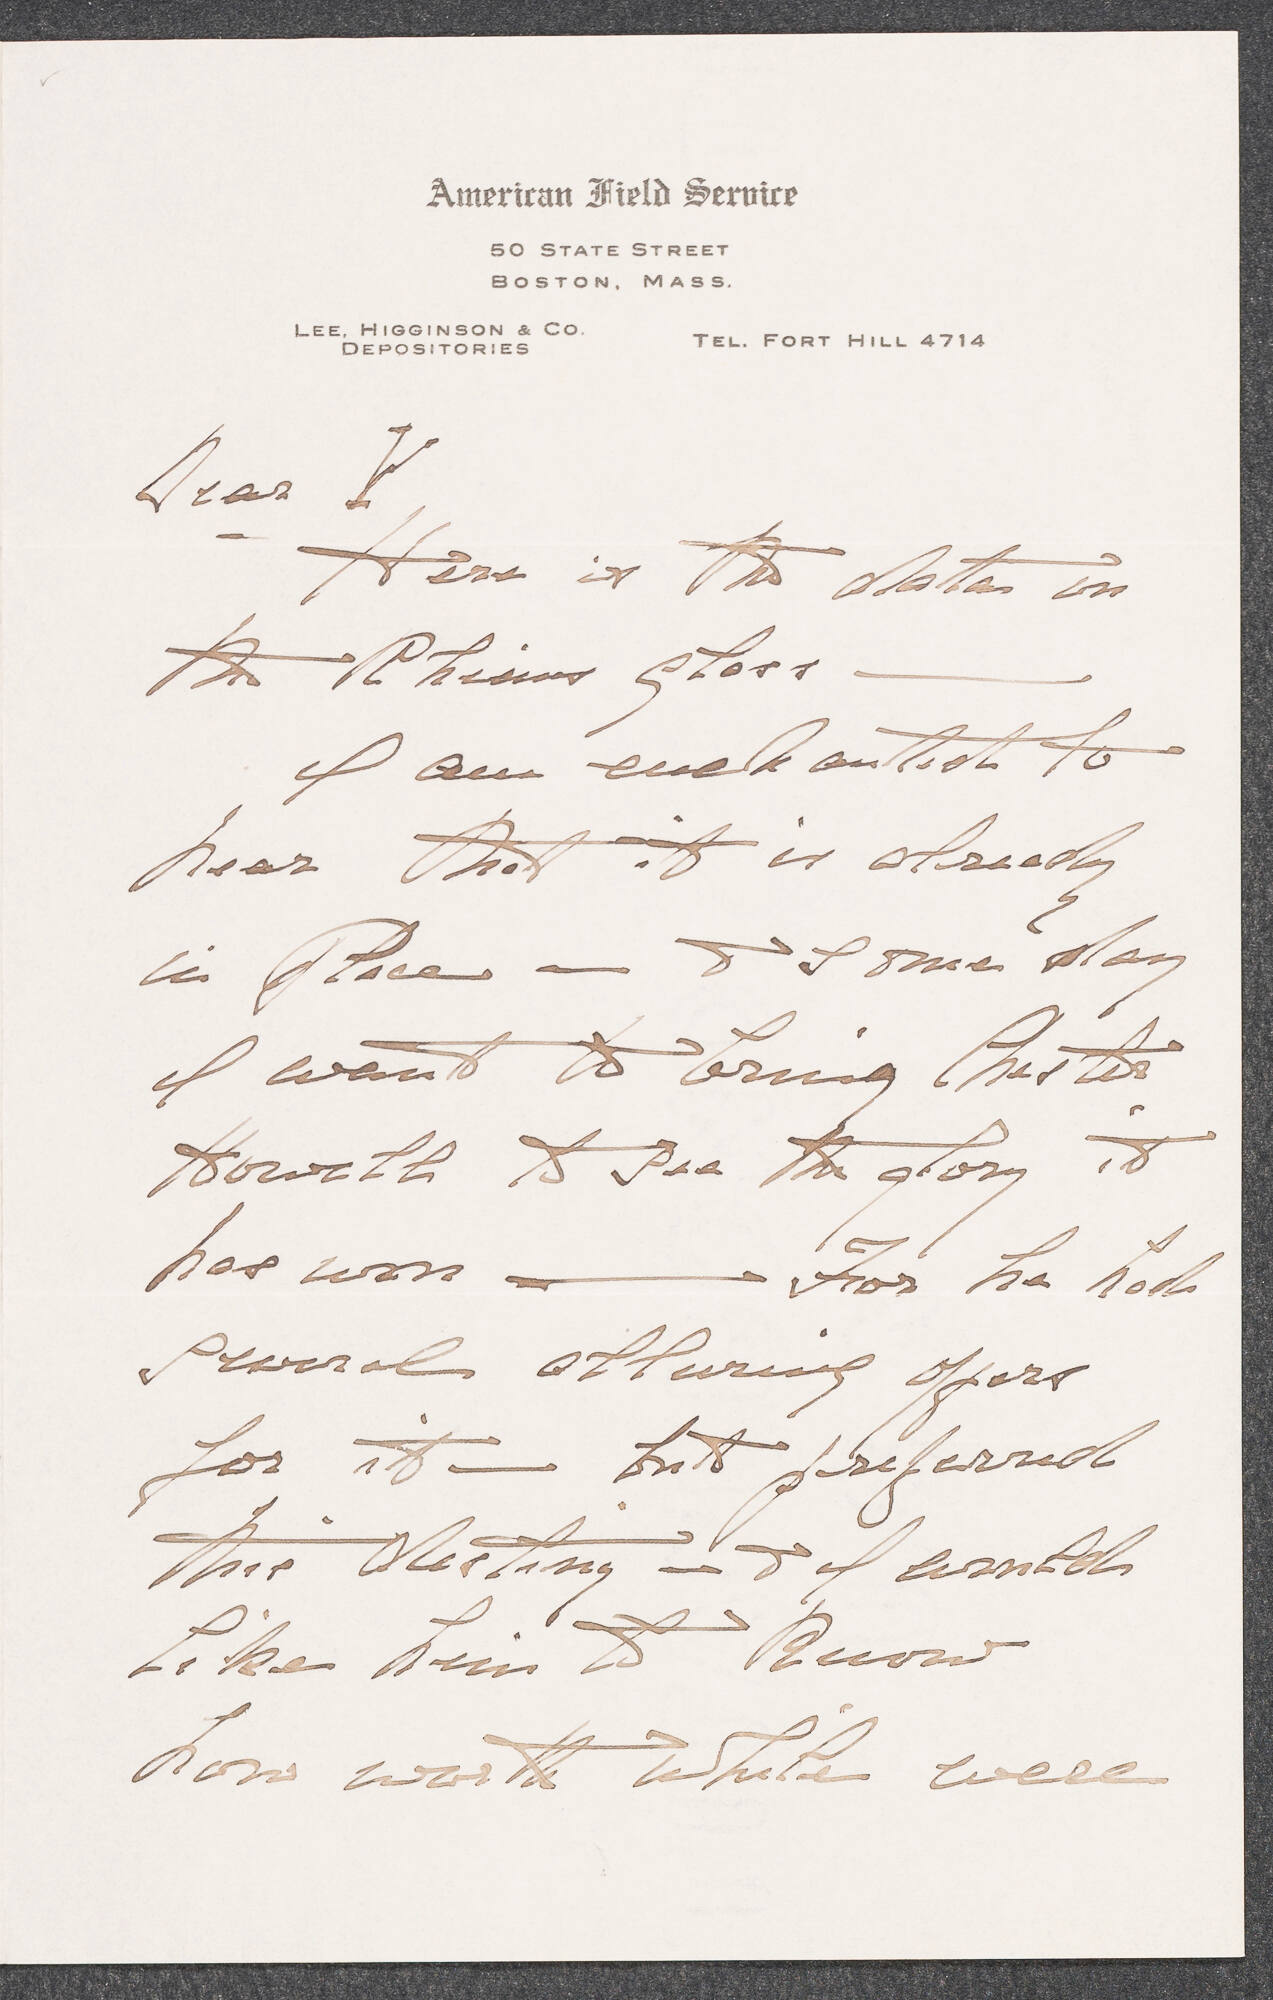 American Field Service
50 STATE STREET
BOSTON, MASS.
LEE, HIGGINSON & CO.
DEPOSITORIES
TEL. FORT HILL 4714
Dear Y
Here is the data on
the Rheims glass —
I am enchanted to
hear that it is already
in place — & some day
I want to bring Chester
Howell to see the glory it
has won — For he had
several alluring offers
for it — but preferred
this destiny — & I would
like him to know
how worth while were